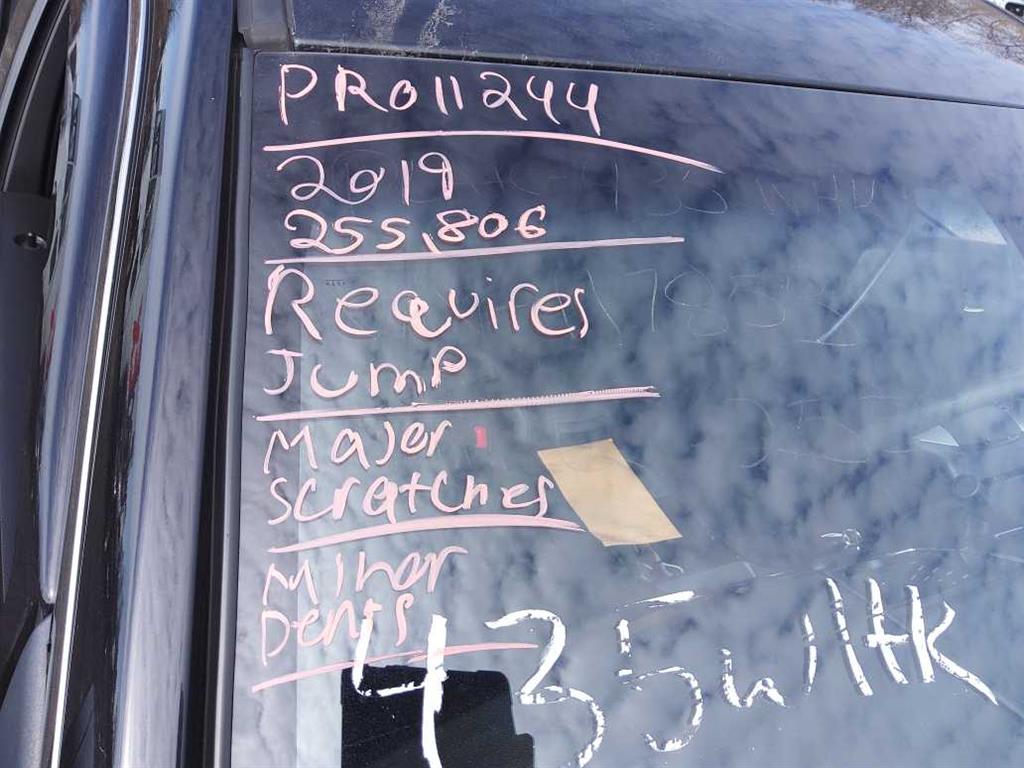 PRO11244
2019
255,806
Requires
Jump
Major
Scratches
Minor
Dents